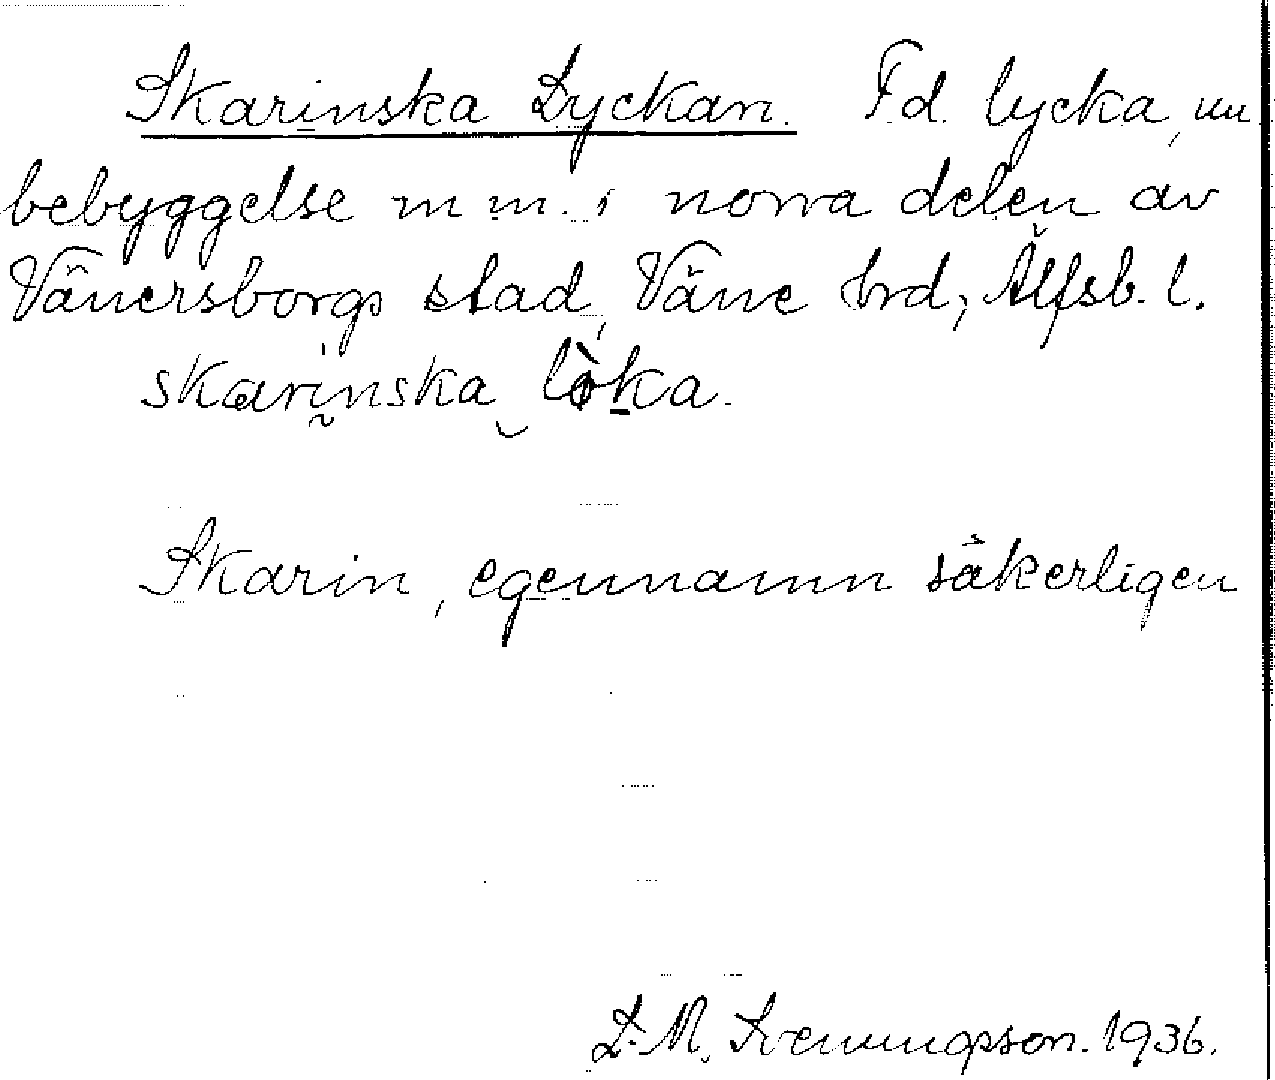 Skarinska Lyckan. F.d. lycka, nu
bebyggelse m.m. i norra delen av
Vänersborgs stad, Väne hrd, Älfsb. l.
skarinska lòka.
Skarin, egennamn säkerligen
L. M. Svenungsson. 1936.